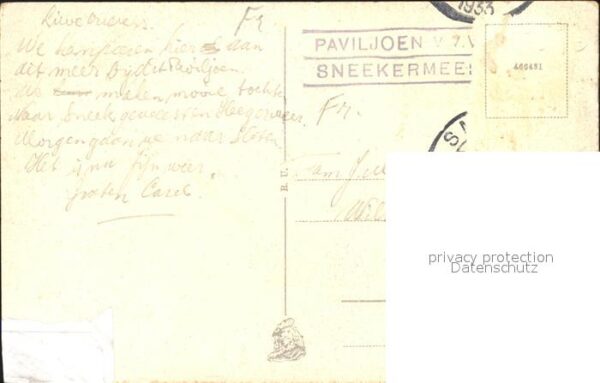 Lieve ouders.
We kamperen hier aan
dit meer bij dit Paviljoen,
maken mooie tochten
Naar Sneek geweest en Heegermeer.
Morgen gaan we naar Sloten.
Het is nu fijn weer,
groeten Carel.
Fr.
1933
PAVILJOEN V
SNEEKERMEE
466491
Fr.
Fam
privacy protection
Datenschutz